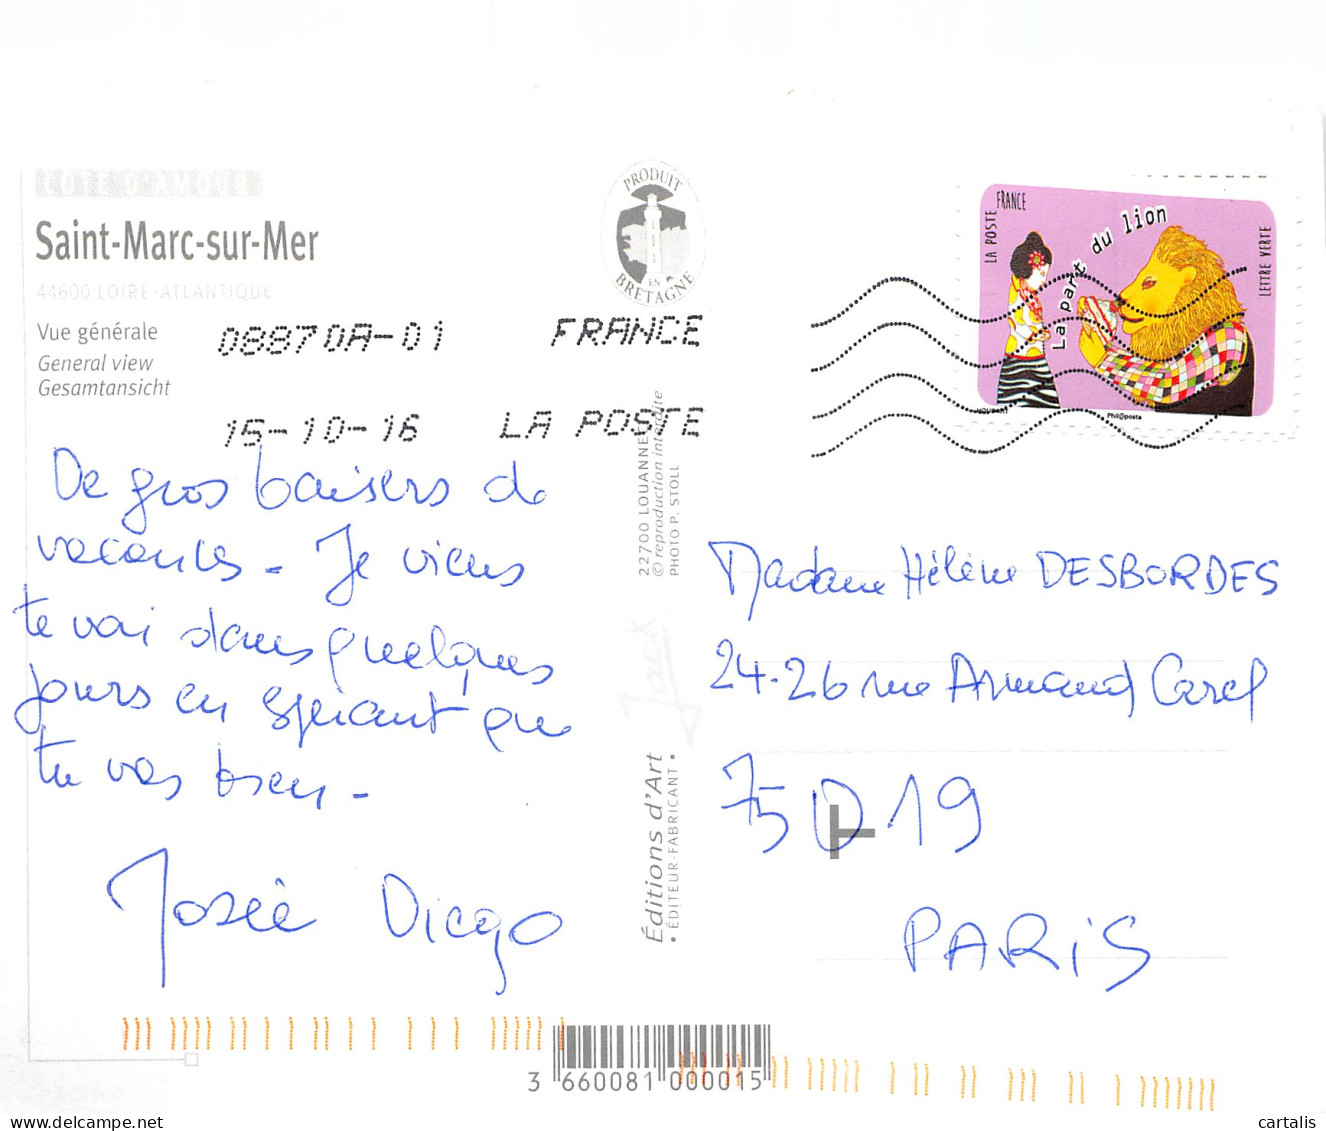 CÔTE D'AMOUR
Saint-Marc-sur-Mer
44600 LOIRE-ATLANTIQUE
Vue générale
General view
Gesamtansicht
PRODUIT
EN
BRETAGNE
08870A-01 FRANCE
15-10-16 LA POSTE
LA POSTE
FRANCE
La part du lion
LETTRE VERTE
Phil@poste
De gros baisers de
vacances - Je viens
te voir dans quelques
jours en espérant que
tu vas bien -
Josée Diego
22700 LOUANNEC
© reproduction interdite
PHOTO P. STOLL
Jack
Éditions d'Art
• ÉDITEUR-FABRICANT •
Madame Hélène DESBORDES
24-26 rue Armand Carel
75019
PARIS
3 660081 000015
cartalis